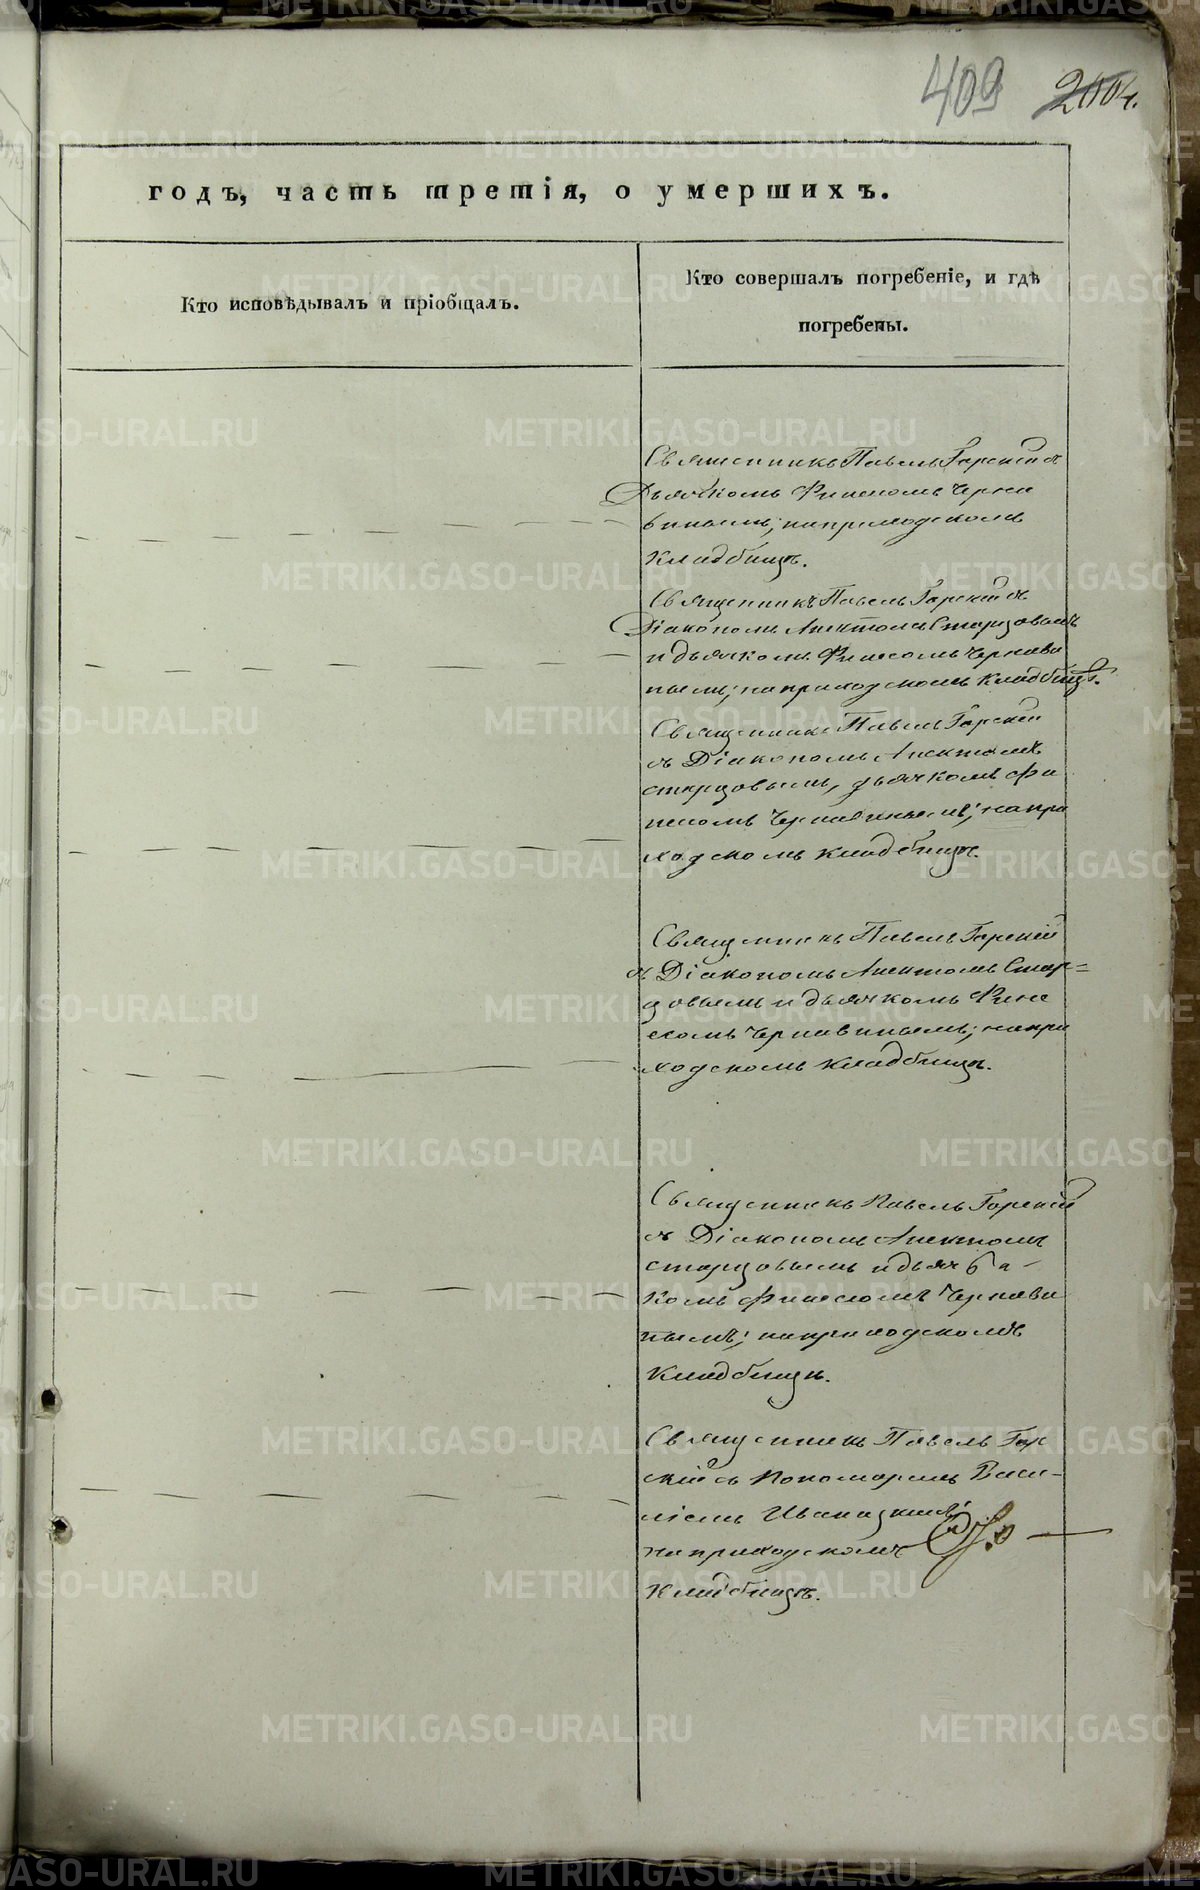 409 200ч.
годъ, часть третія, о умершихъ.
Кто исповѣдывалъ и пріобщалъ.
Кто совершалъ погребеніе, и гдѣ
погребены.
Священникъ Павелъ Горскій съ
Дьячкомъ Финесомъ Черна
винымъ; наприходскомъ
кладбищѣ.
Священникъ Павелъ Горскій съ
Діакономъ Старцовымъ
и дьячкомъ Финесомъ Чернави
нымъ; наприходскомъ кладбищѣ.
Священникъ Павелъ Горскій
съ Діакономъ
старцовымъ, дьячкомъ фи
несомъ Чернавинымъ; напри
ходскомъ кладбищѣ.
Священникъ Павелъ Горскій
съ Діакономъ Стар=
цовымъ и дьячкомъ Фине
сомъ Чернавинымъ; напри
ходскомъ кладбищѣ.
Священникъ Павелъ Горскій
съ Діакономъ
старцовымъ идьяч
комъ финесомъ Чернави
нымъ; наприходскомъ
кладбищѣ.
Священникъ Павелъ Гор
скій съ Пономаремъ Васи-
ліемъ
наприходскомъ
кладбищѣ.
METRIKI.GASO-URAL.RU